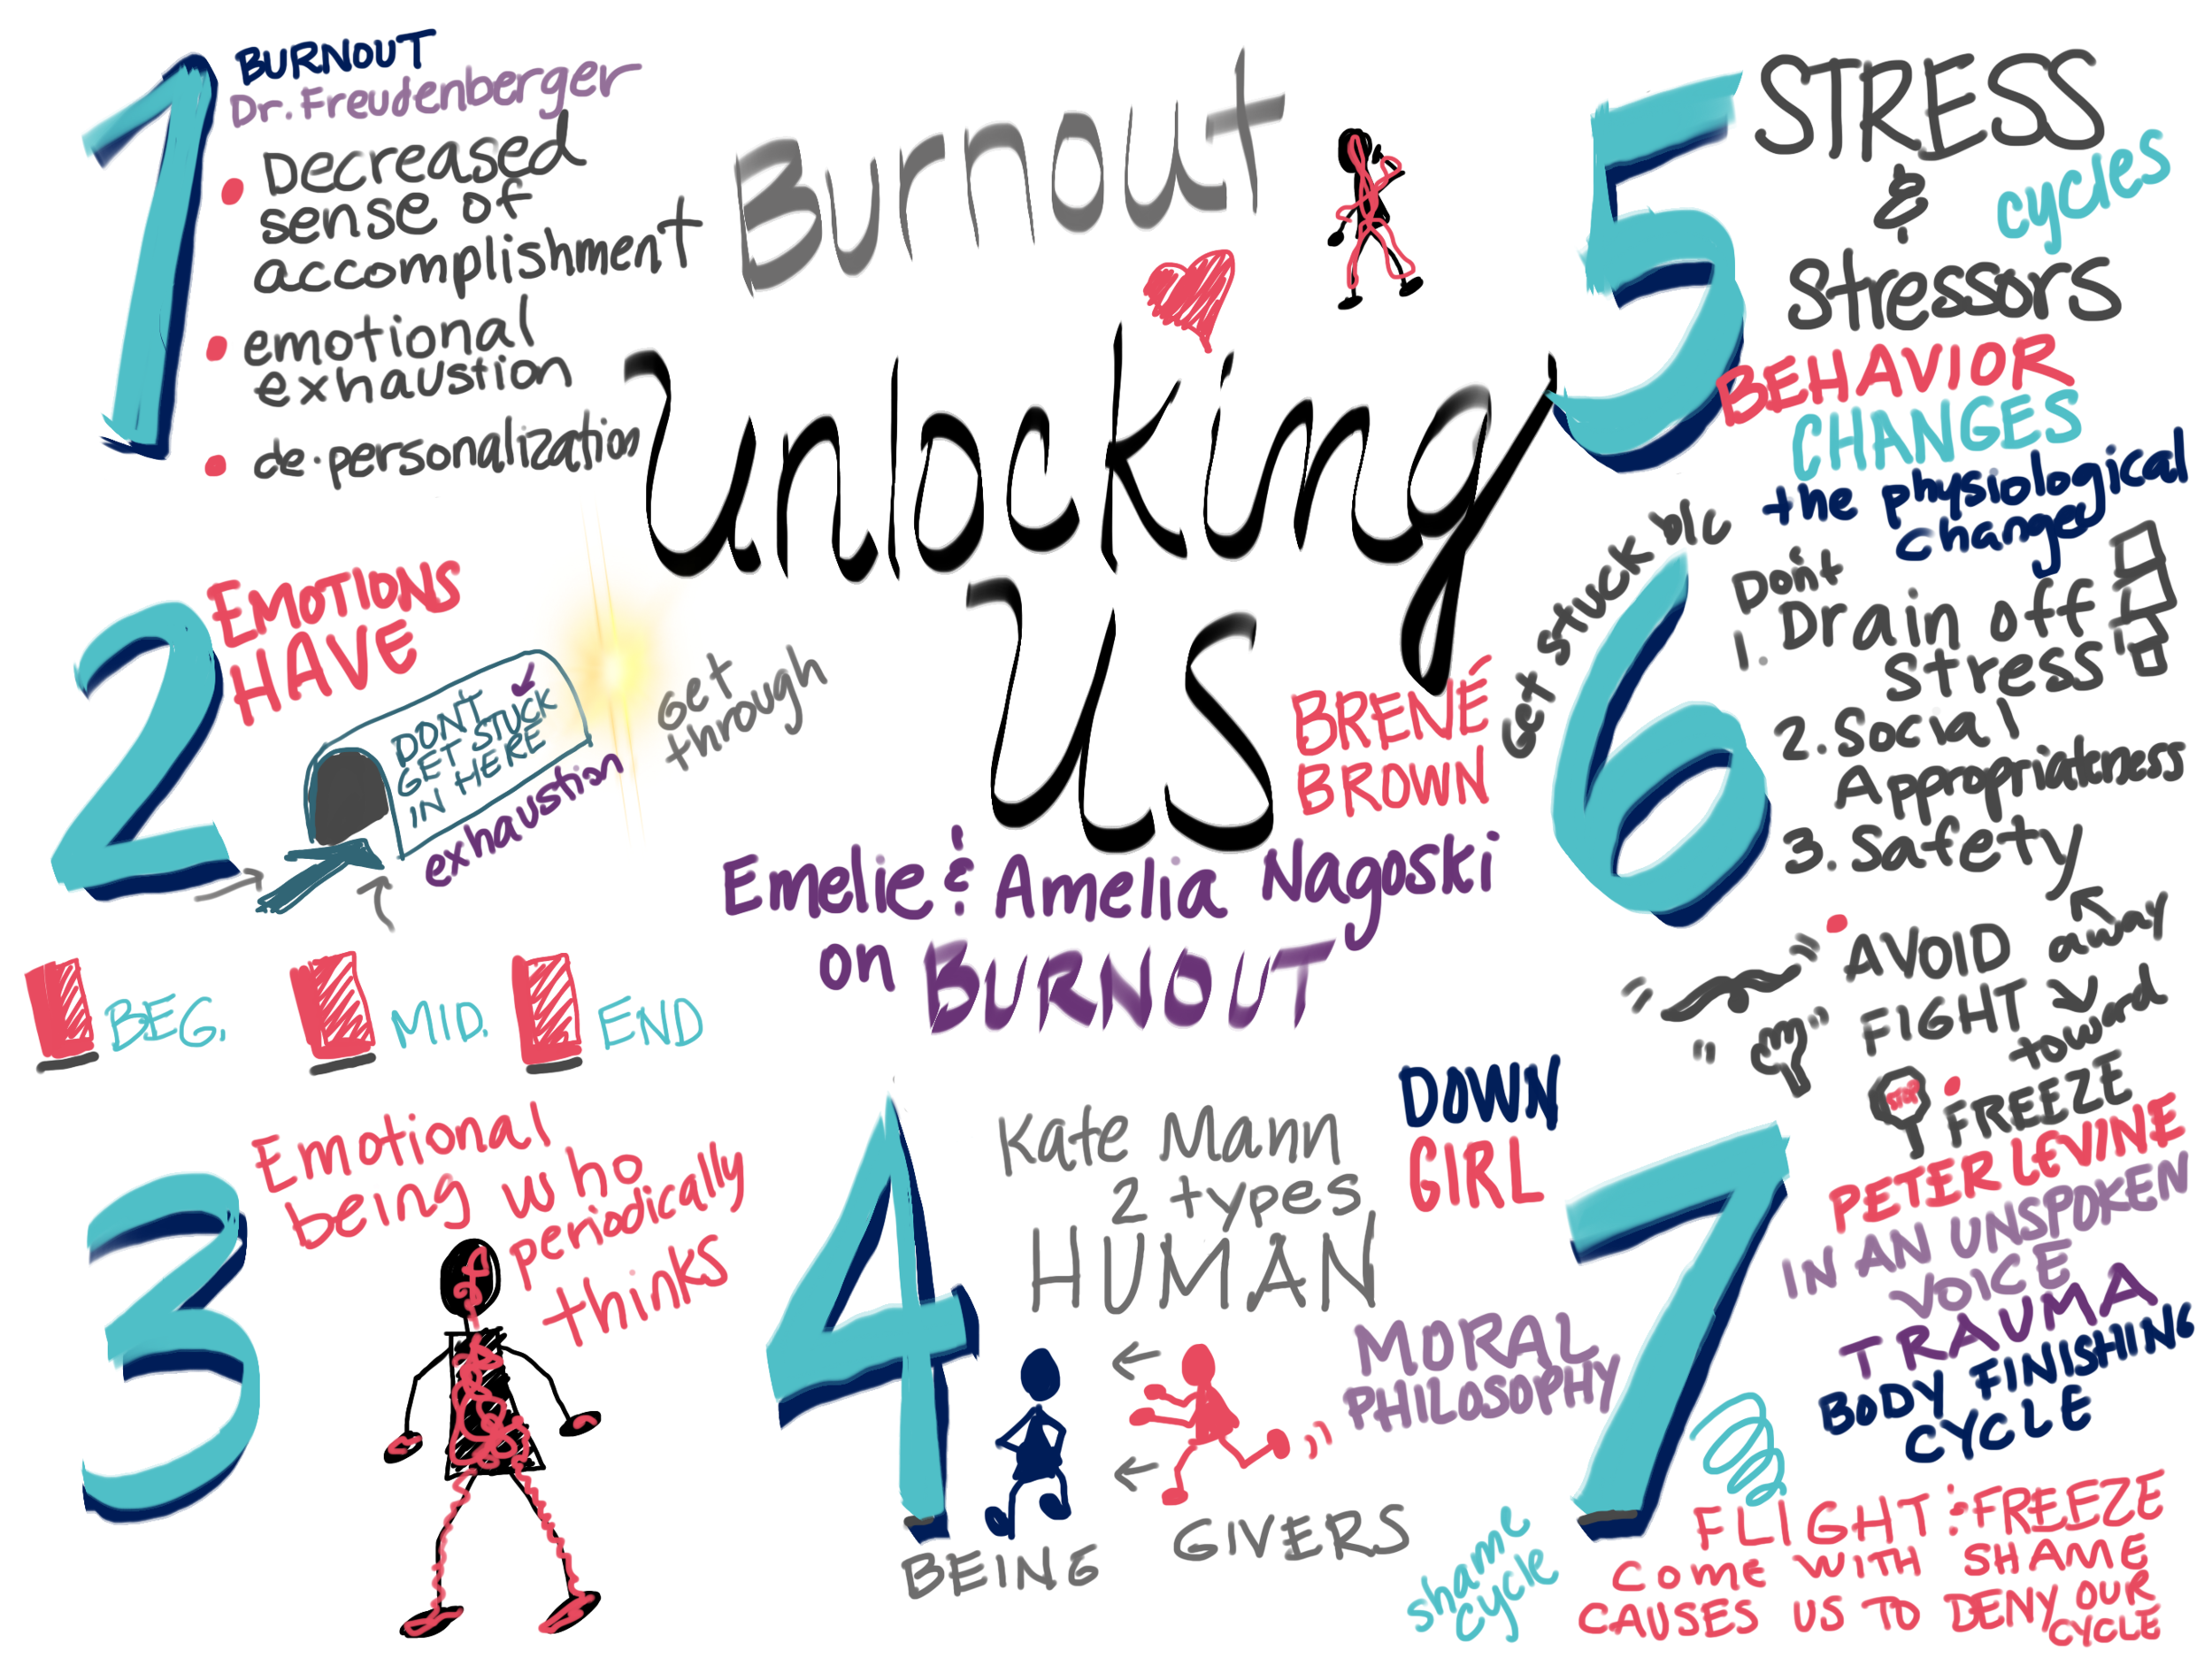 Burnout
Unlocking
US
BRENÉ
BROWN
Emelie & Amelia Nagoski
on BURNOUT
1
BURNOUT
Dr. Freudenberger
• Decreased
sense of
accomplishment
• emotional
exhaustion
• de-personalization
2
EMOTIONS
HAVE
DON'T
GET STUCK
IN HERE
exhaustion
Get
through
BEG.
MID.
END
3
Emotional
being who
periodically
thinks
4
Kate Mann
2 types
HUMAN
DOWN
GIRL
MORAL
PHILOSOPHY
BEING
GIVERS
5
STRESS
&
cycles
Stressors
BEHAVIOR
CHANGES
the physiological
changes
6
Get stuck b/c
Don't
1. Drain off
stress
2. Social
Appropriateness
3. Safety
• AVOID away
FIGHT toward
STOP
• FREEZE
7
PETER LEVINE
IN AN UNSPOKEN
VOICE
TRAUMA
BODY FINISHING
CYCLE
FLIGHT & FREEZE
COME WITH SHAME
CAUSES US TO DENY OUR
CYCLE
shame
cycle